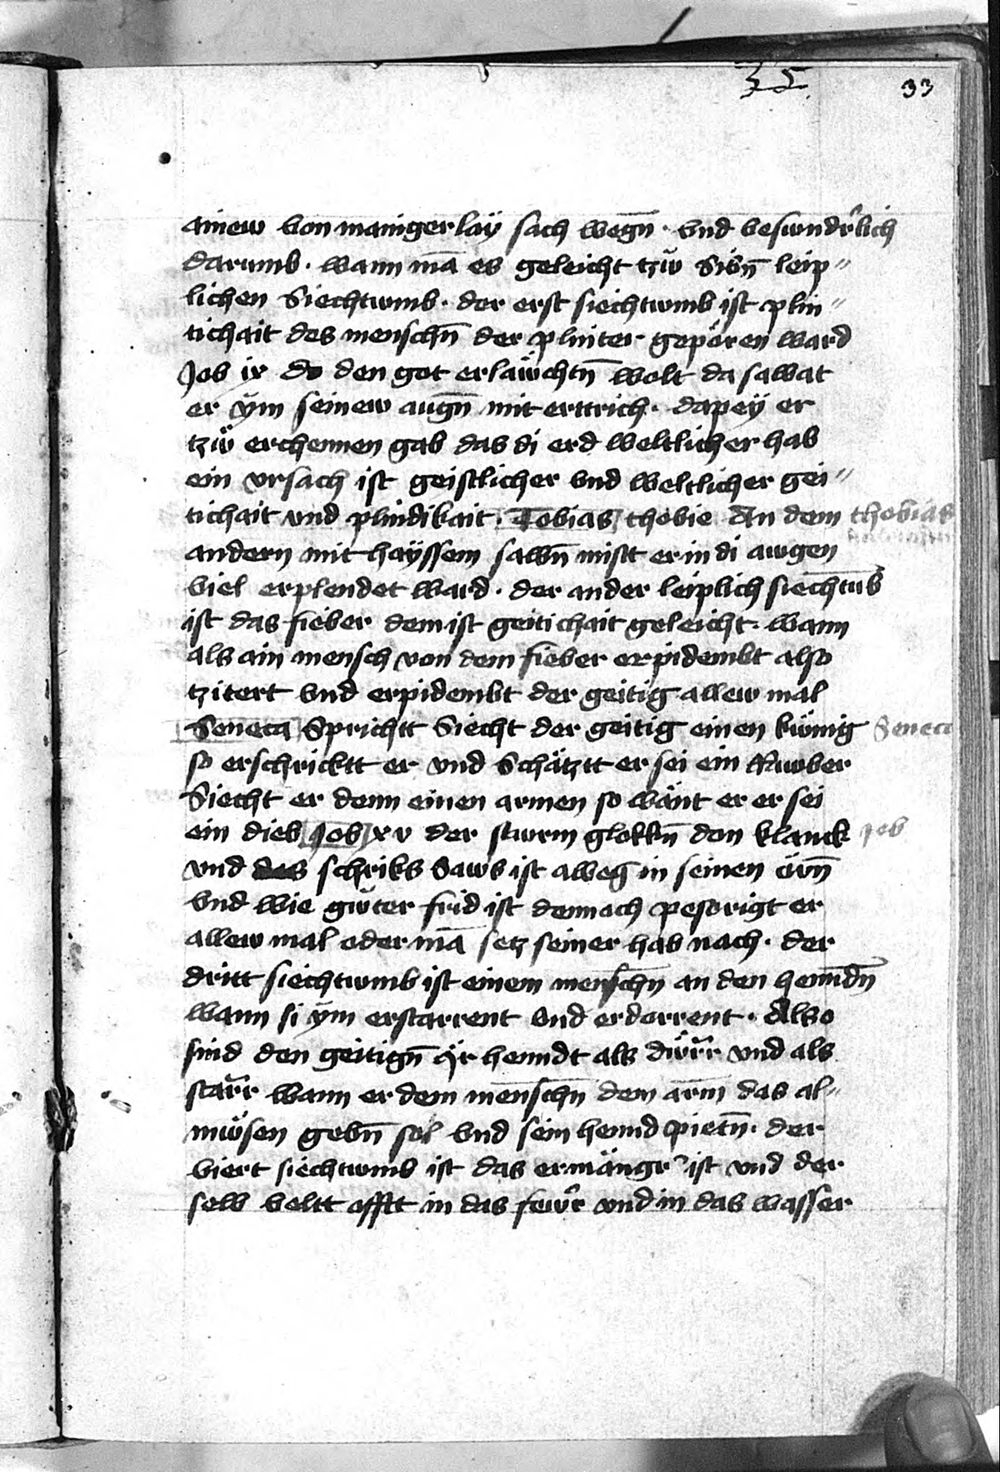 35
33
ainew von manigerlaÿ sach wegn̄ · vnd besundr̂lich
darumb · wann mā es geleicht tzw̆ Sibn̄ leip〃
lichen Siechtumb · der erst siechtumb ist plin〃
tichait des menschn̄ der plinter geporen ward
Job ix do den got erlaẅchtn̄ wolt da sawat
er ÿm seinew augn̄ mit erttrich · dapeÿ er
tzw̆ erchennen gab das di erd weltlicher hab
ein vrsach ist geistlicher vnd weltlicher gei〃
tichait vnd plindikait · Tobias thobie An dem thobias
andern mit haÿssem sawn̄ mistt er in di awgen
viel erplendet ward · der ander leiplich siechtūb
ist das fieber dem ist geitichait geleicht · wann
als ain mensch von dem fieber erpidembt also
tzitert vnd erpidembt der geitig allew mal
Seneca Sprichtt Siecht der geitig einen kẅnig Seneca
so erschricktt er vnd Schätztt er sei ein Rawber
Siecht er denn einen armen so wänt er er sei
ein dieb Job xv der sturm glokkn̄ don klanck Job
vnd des schriks Saws ist albeg in seinen örn̄
vnd wie gẅter frid ist dennoch pesorigt er
allew mal oder mā setz seiner hab nach · der
dritt siechtumb ist einem menschn̄ an den henndn̄
wann si ÿm erstarrent vnd erdorrent · Also
sind den geitign̄ ÿr henndt als dẅrr vnd als
starr wann er dem menschn̄ dem arm̄ das al〃
mẅsen gebn̄ sol vnd sein hennd pietn̄ · der
viert siechtumb ist das er mänigr̂ ist vnd der
selb veltt offtt in das fewr̂ vnd in das wasser